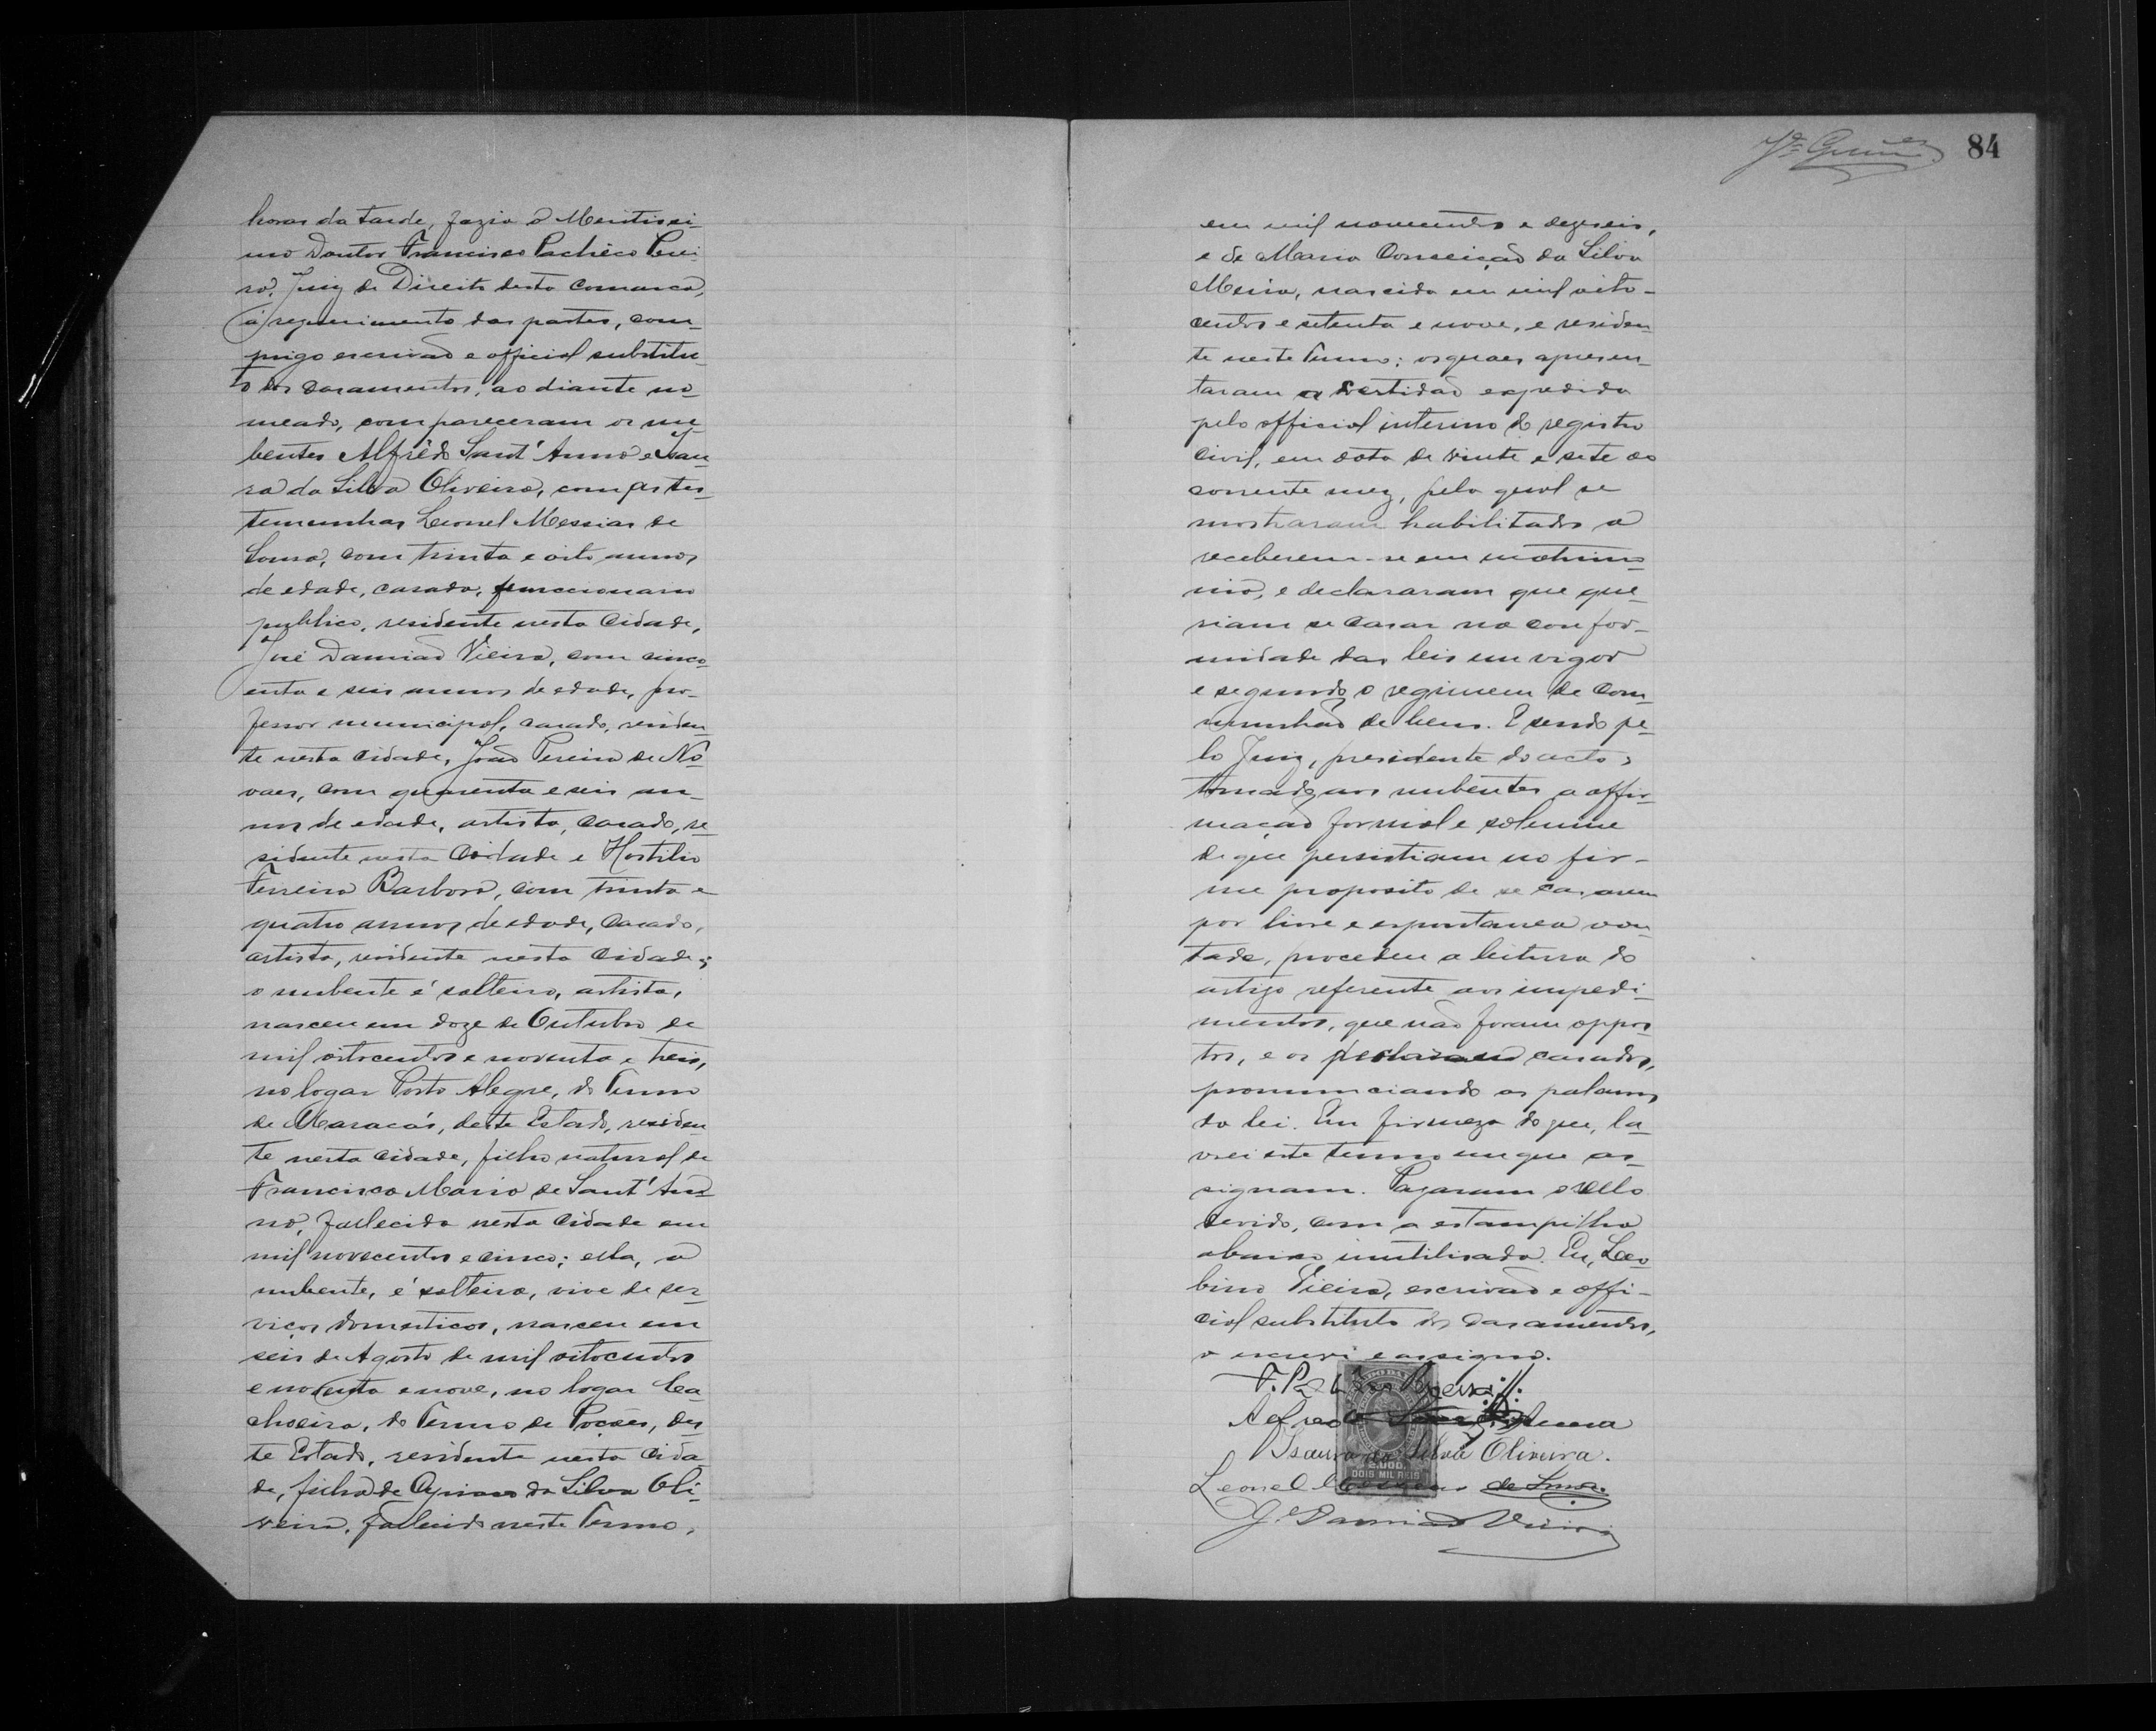 horas da tarde, fazia o Meritissi-
mo Doutor Francisco Pachêco Perei-
ra, Juiz de Direito desta Comarca,
á requerimento das partes, com-
migo escrivão e official substitu-
to dos casamentos, ao diante no-
meado, compareceram os nu-
bentes Alfrêdo Sant'Anna e Isau-
ra da Silva Oliveira, com as tes-
temunhas Leonel Messias de
Souza, com trinta e oito annos
de edade, casado, funccionario
publico, residente nesta Cidade,
José Damião Vieira, com cinco-
enta e seis annos de edade, pro-
fessor municipal, casado, residen-
te nesta cidade, João Pereira de No-
vaes, com quarenta e seis an-
nos de edade, artista, casado, re-
sidente nesta Cidade e Hostilio
Ferreira Barbosa, com trinta e
quatro annos de edade, casado,
artista, residente nesta Cidade;
o nubente é solteiro, artista,
nasceu em doze de Outubro de
mil oitocentos e noventa e treis,
no logar Porto Alegre, do Termo
de Maracás, deste Estado, residen-
te nesta cidade, filho natural de
Francisca Maria de Sant'An-
na, fallecida nesta Cidade em
mil novecentos e cinco; ella, a
nubente, é solteira, vive de ser-
viços domesticos, nasceu em
seis de Agosto de mil oitocentos
e noventa e nove, no logar Ca-
choeira, do Termo de Poções, des-
te Estado, residente nesta Cida-
de, filha de da Silva Oli-
veira, fallecido neste Termo,
84
em mil novecentos e dezeseis,
e de Maria Conceição da Silva
Meira, nascida em mil oito-
centos e setenta e nove, e residen-
te neste Termo; os quaes apresen-
taram a certidão expedida
pelo official interino do registro
Civil, em data de vinte e sete do
corrente mez, pela qual se
mostraram habilitados a
receberem-se em matrimo-
nio, e declararam que que-
riam se casar na confor-
midade das leis em vigor
e segundo o regimem de com-
munhão de bens. E sendo pe-
lo Juiz, presidente do acto,
tomada aos nubentes a affir-
mação formal e solemne
de que persistiam no fir-
me proposito de se casarem
por livre e espontanea von-
tade, procedeu a leitura do
artigo referente aos impedi-
mentos, que não foram oppos-
tos, e os declarando casados,
pronunciando as palavras
da lei. Em firmeza do que, la-
vrei este termo em que as-
signam. Pagaram o sello
devido, com a estampilha
abaixo inutilisada. Eu,
Vieira, escrivão e offi-
cial substituto dos casamentos,
o escrevi e assigno.
F. Pereira
Alfredo Anna
Isaura da Silva Oliveira.
2.000
DOIS MIL REIS
Leonel Messias de Souza.
J. Damião Vieira